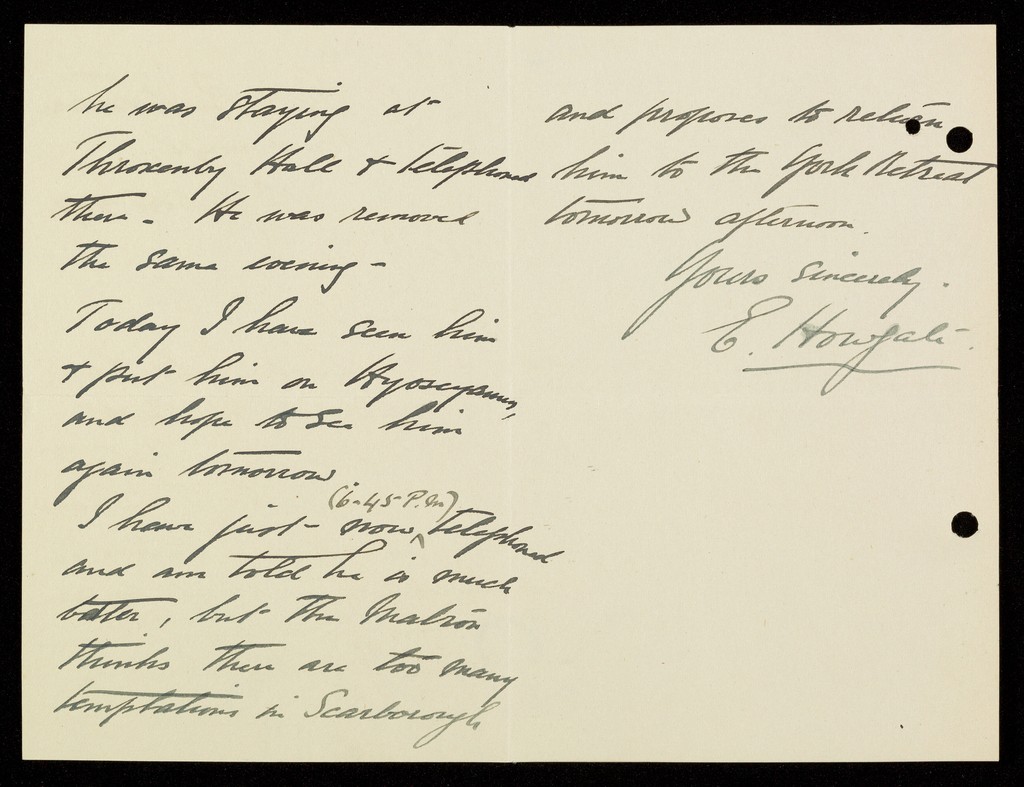 he was staying at
Throxenby Hall & telephoned
there - He was removed
the same evening -
Today I have seen him
& put him on Hyoscyamus,
and hope to see him
again tomorrow.
(6-45 P.m)
I have just - now telephoned
and am told he is much
better, but the Matron
thinks there are too many
temptations in Scarborough
and proposes to return
him to the York Retreat
tomorrow afternoon.
Yours sincerely.
E. Howgate.